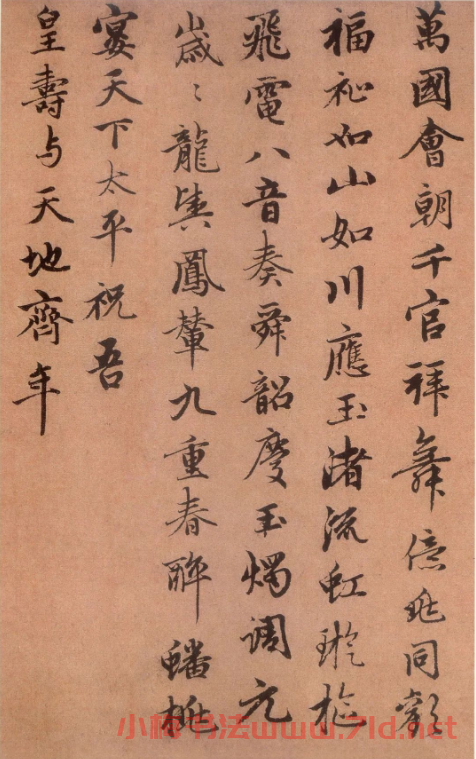 萬國會朝千官拜舞億兆同歡
福祉如山如川應玉渚流虹璇樞
飛電八音奏舜韶慶玉燭調元
歲〻龍輿鳳輦九重春醉蟠桃
宴天下太平祝吾
皇壽与天地齊年
小楷书法www.7ld.net